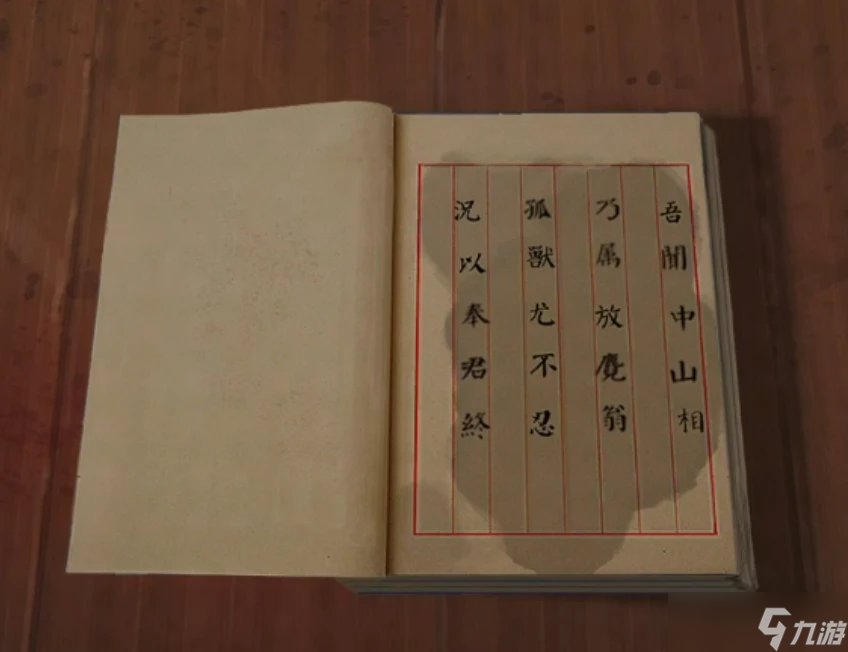 吾聞中山相
乃属放麑翁
孤獸尤不忍
况以奉君終
九游